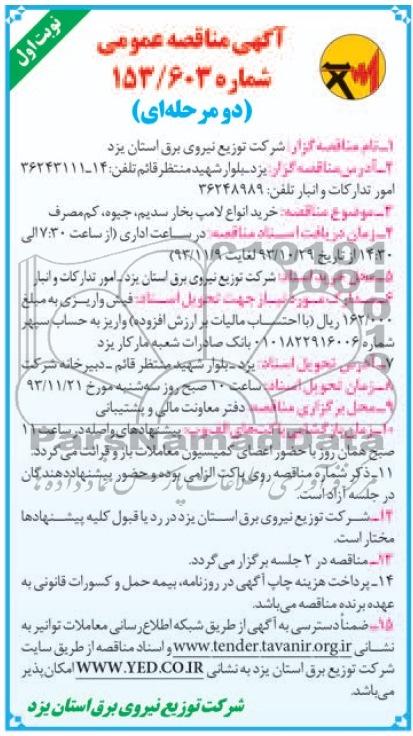 نوبت اول
آگهی مناقصه عمومی
شماره ۱۵۳/۶۰۳
(دو مرحله‌ای)
۱ـ نام مناقصه گزار: شرکت توزیع نیروی برق استان یزد
۲ـ آدرس مناقصه گزار: یزد ـ بلوار شهید منتظر قائم تلفن: ۱۴ـ۳۶۲۴۳۱۱۱
امور تدارکات و انبار تلفن: ۳۶۲۴۸۹۸۹
۳ـ موضوع مناقصه: خرید انواع لامپ بخار سدیم، جیوه، کم‌مصرف
۴ـ زمان دریافت اسناد مناقصه: در ساعت اداری (از ساعت ۷:۳۰ الی
۱۴:۳۰ از تاریخ ۹۳/۱۰/۲۹ لغایت ۹۳/۱۱/۹)
۵ـ محل خرید اسناد: شرکت توزیع نیروی برق استان یزد ـ امور تدارکات و انبار
۶ـ مدارک مورد نیاز جهت تحویل اسناد: فیش واریزی به مبلغ
۱۶۲/۰۰۰ ریال (با احتساب مالیات بر ارزش افزوده) واریز به حساب سپهر
شماره ۰۱۰۱۸۲۲۹۱۶۰۰۶ بانک صادرات شعبه مارکار یزد
۷ـ آدرس تحویل اسناد: یزد ـ بلوار شهید منتظر قائم ـ دبیرخانه شرکت
۸ـ زمان تحویل اسناد: ساعت ۱۰ صبح روز سه‌شنبه مورخ ۹۳/۱۱/۲۱
۹ـ محل برگزاری مناقصه: دفتر معاونت مالی و پشتیبانی
۱۰ـ زمان بازگشایی پاکت‌های الف و ب: پیشنهادهای واصله در ساعت ۱۱
صبح همان روز با حضور اعضای کمیسیون معاملات باز و قرائت می‌گردد.
۱۱ـ ذکر شماره مناقصه روی پاکت الزامی بوده و حضور پیشنهاددهندگان
در جلسه آزاد است.
۱۲ـ شرکت توزیع نیروی برق استان یزد در رد یا قبول کلیه پیشنهادها
مختار است.
۱۳ـ مناقصه در ۲ جلسه برگزار می‌گردد.
۱۴ـ پرداخت هزینه چاپ آگهی در روزنامه، بیمه حمل و کسورات قانونی به
عهده برنده مناقصه می‌باشد.
۱۵ـ ضمناً دسترسی به آگهی از طریق شبکه اطلاع‌رسانی معاملات توانیر به
نشانی www.tender.tavanir.org.ir و اسناد مناقصه از طریق سایت
شرکت توزیع برق استان یزد به نشانی WWW.YED.CO.IR امکان‌پذیر
می‌باشد.
شرکت توزیع نیروی برق استان یزد
ParsNamadData